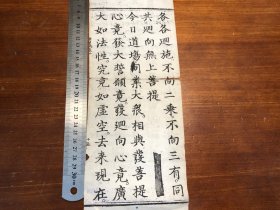 各各迴施不向二乘不向三有同
共迴向無上菩提
今日道場同業大衆相與發菩提
心竟發大誓願竟發迴向心竟廣
大如法性究竟如虛空去來現在